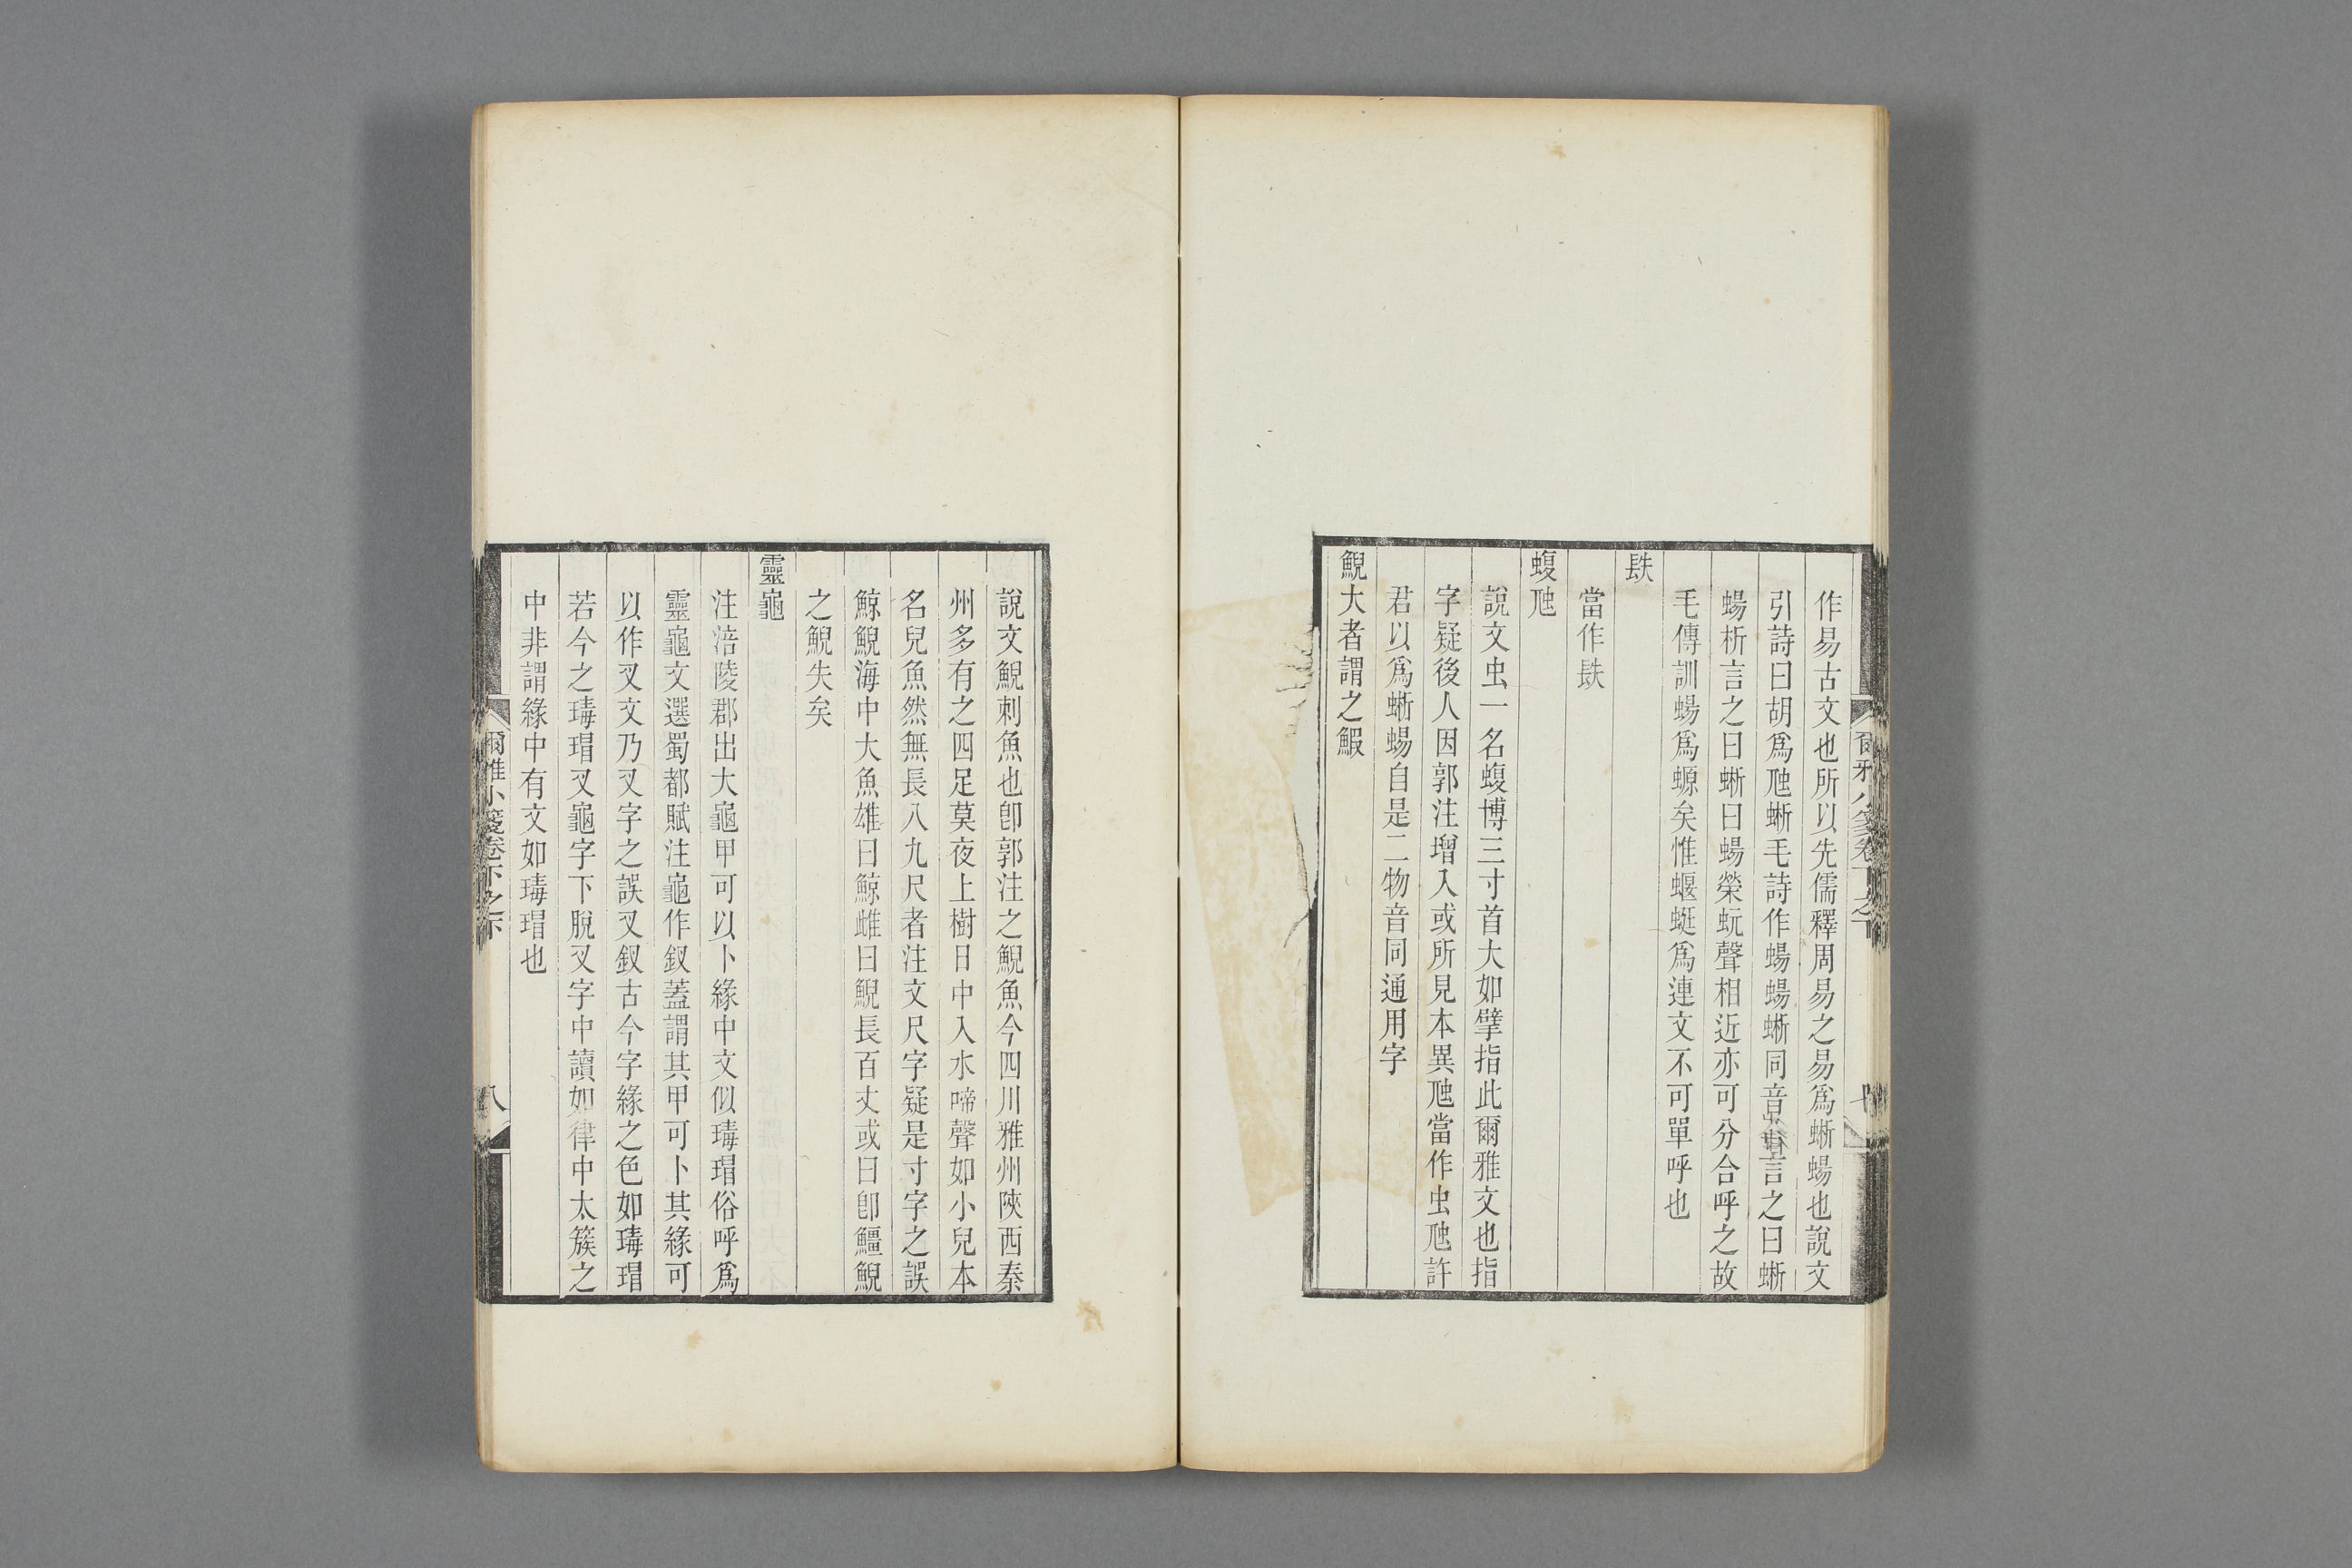 作易古文也所以先儒釋周易之易爲蜥蜴也說文
引詩曰胡爲虺蜥毛詩作蜴蜴蜥同音言之曰蜥
蜴析言之曰蜥曰蜴榮蚖聲相近亦可分合呼之故
毛傳訓蜴爲螈矣惟蝘蜓爲連文不可單呼也
镻
當作镻
蝮虺
說文虫一名蝮博三寸首大如擘指此爾雅文也指
字疑後人因郭注增入或所見本異虺當作虫虺許
君以爲蜥蜴自是二物音同通用字
鯢大者謂之鰕
爾雅小箋卷下之下
說文鯢刺魚也卽郭注之鯢魚今四川雅州陝西秦
州多有之四足莫夜上樹日中入水啼聲如小兒本
名兒魚然無長八九尺者注文尺字疑是寸字之誤
鯨鯢海中大魚雄曰鯨雌曰鯢長百丈或曰卽鱷鯢
之鯢失矣
靈龜
注涪陵郡出大龜甲可以卜緣中文似瑇瑁俗呼爲
靈龜文選蜀都賦注龜作釵蓋謂其甲可卜其緣可
以作叉文乃叉字之誤叉釵古今字緣之色如瑇瑁
若今之瑇瑁叉龜字下脫叉字中讀如律中太簇之
中非謂緣中有文如瑇瑁也
爾雅小箋卷下之下
八